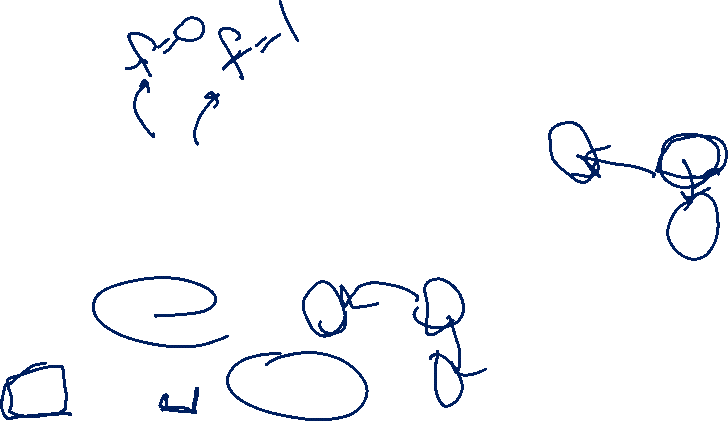 f=0 f=1